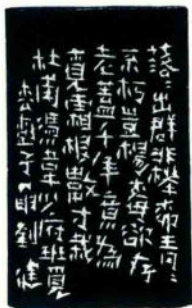 落〻出群非櫸柳青〻
不朽豈楊梅欲存
老蓋千年意為
覓霜根數寸栽
杜甫憑韋少府班覓
松樹子